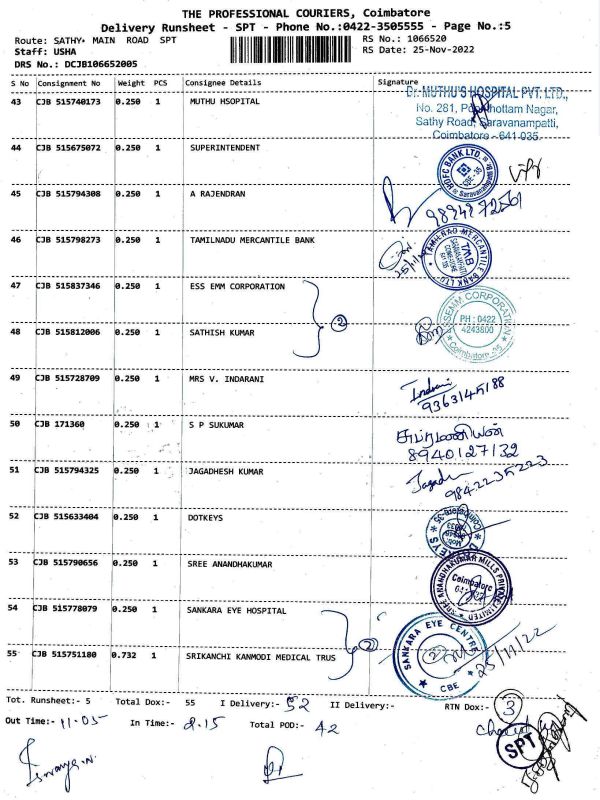 THE PROFESSIONAL COURIERS, Coimbatore
Delivery Runsheet - SPT - Phone No.:0422-3505555 - Page No.:5
Route: SATHY- MAIN ROAD SPT
RS No.: 1066520
Staff: USHA
RS Date: 25-Nov-2022
DRS No.: DCJB106652005
S No Consignment No Weight PCS Consignee Details Signature
43 CJB 515740173 0.250 1 MUTHU HSOPITAL
Dr. MUTHU'S HOSPITAL PVT. LTD.,
No. 281, Nagar,
Sathy Road, Saravanampatti,
Coimbatore - 641 035.
44 CJB 515675072 0.250 1 SUPERINTENDENT
HDFC BANK LTD.
CBE - 35
45 CJB 515794308 0.250 1 A RAJENDRAN
46 CJB 515798273 0.250 1 TAMILNADU MERCANTILE BANK
TAMILNAD MERCANTILE BANK LTD.
TMB
47 CJB 515837346 0.250 1 ESS EMM CORPORATION
2
PH : 0422
4243800
Coimbatore -35
48 CJB 515812006 0.250 1 SATHISH KUMAR
49 CJB 515728709 0.250 1 MRS V. INDARANI
Indrani
9363145188
50 CJB 171360 0.250 1 S P SUKUMAR
சுப்ரமணியன்
8940127132
51 CJB 515794325 0.250 1 JAGADHESH KUMAR
9842235223
52 CJB 515633404 0.250 1 DOTKEYS
53 CJB 515790656 0.250 1 SREE ANANDHAKUMAR
SREE ANANDHAKUMAR MILLS PRIVATE LIMITED
Coimbatore
54 CJB 515778079 0.250 1 SANKARA EYE HOSPITAL
2
SANKARA EYE CENTRE
CBE
25/11/22
55 CJB 515751180 0.732 1 SRIKANCHI KANMODI MEDICAL TRUS
Tot. Runsheet:- 5 Total Dox:- 55 I Delivery:- 52 II Delivery:- RTN Dox:- 3
Out Time:- 11-05 In Time:- 2.15 Total POD:- 42
SPT